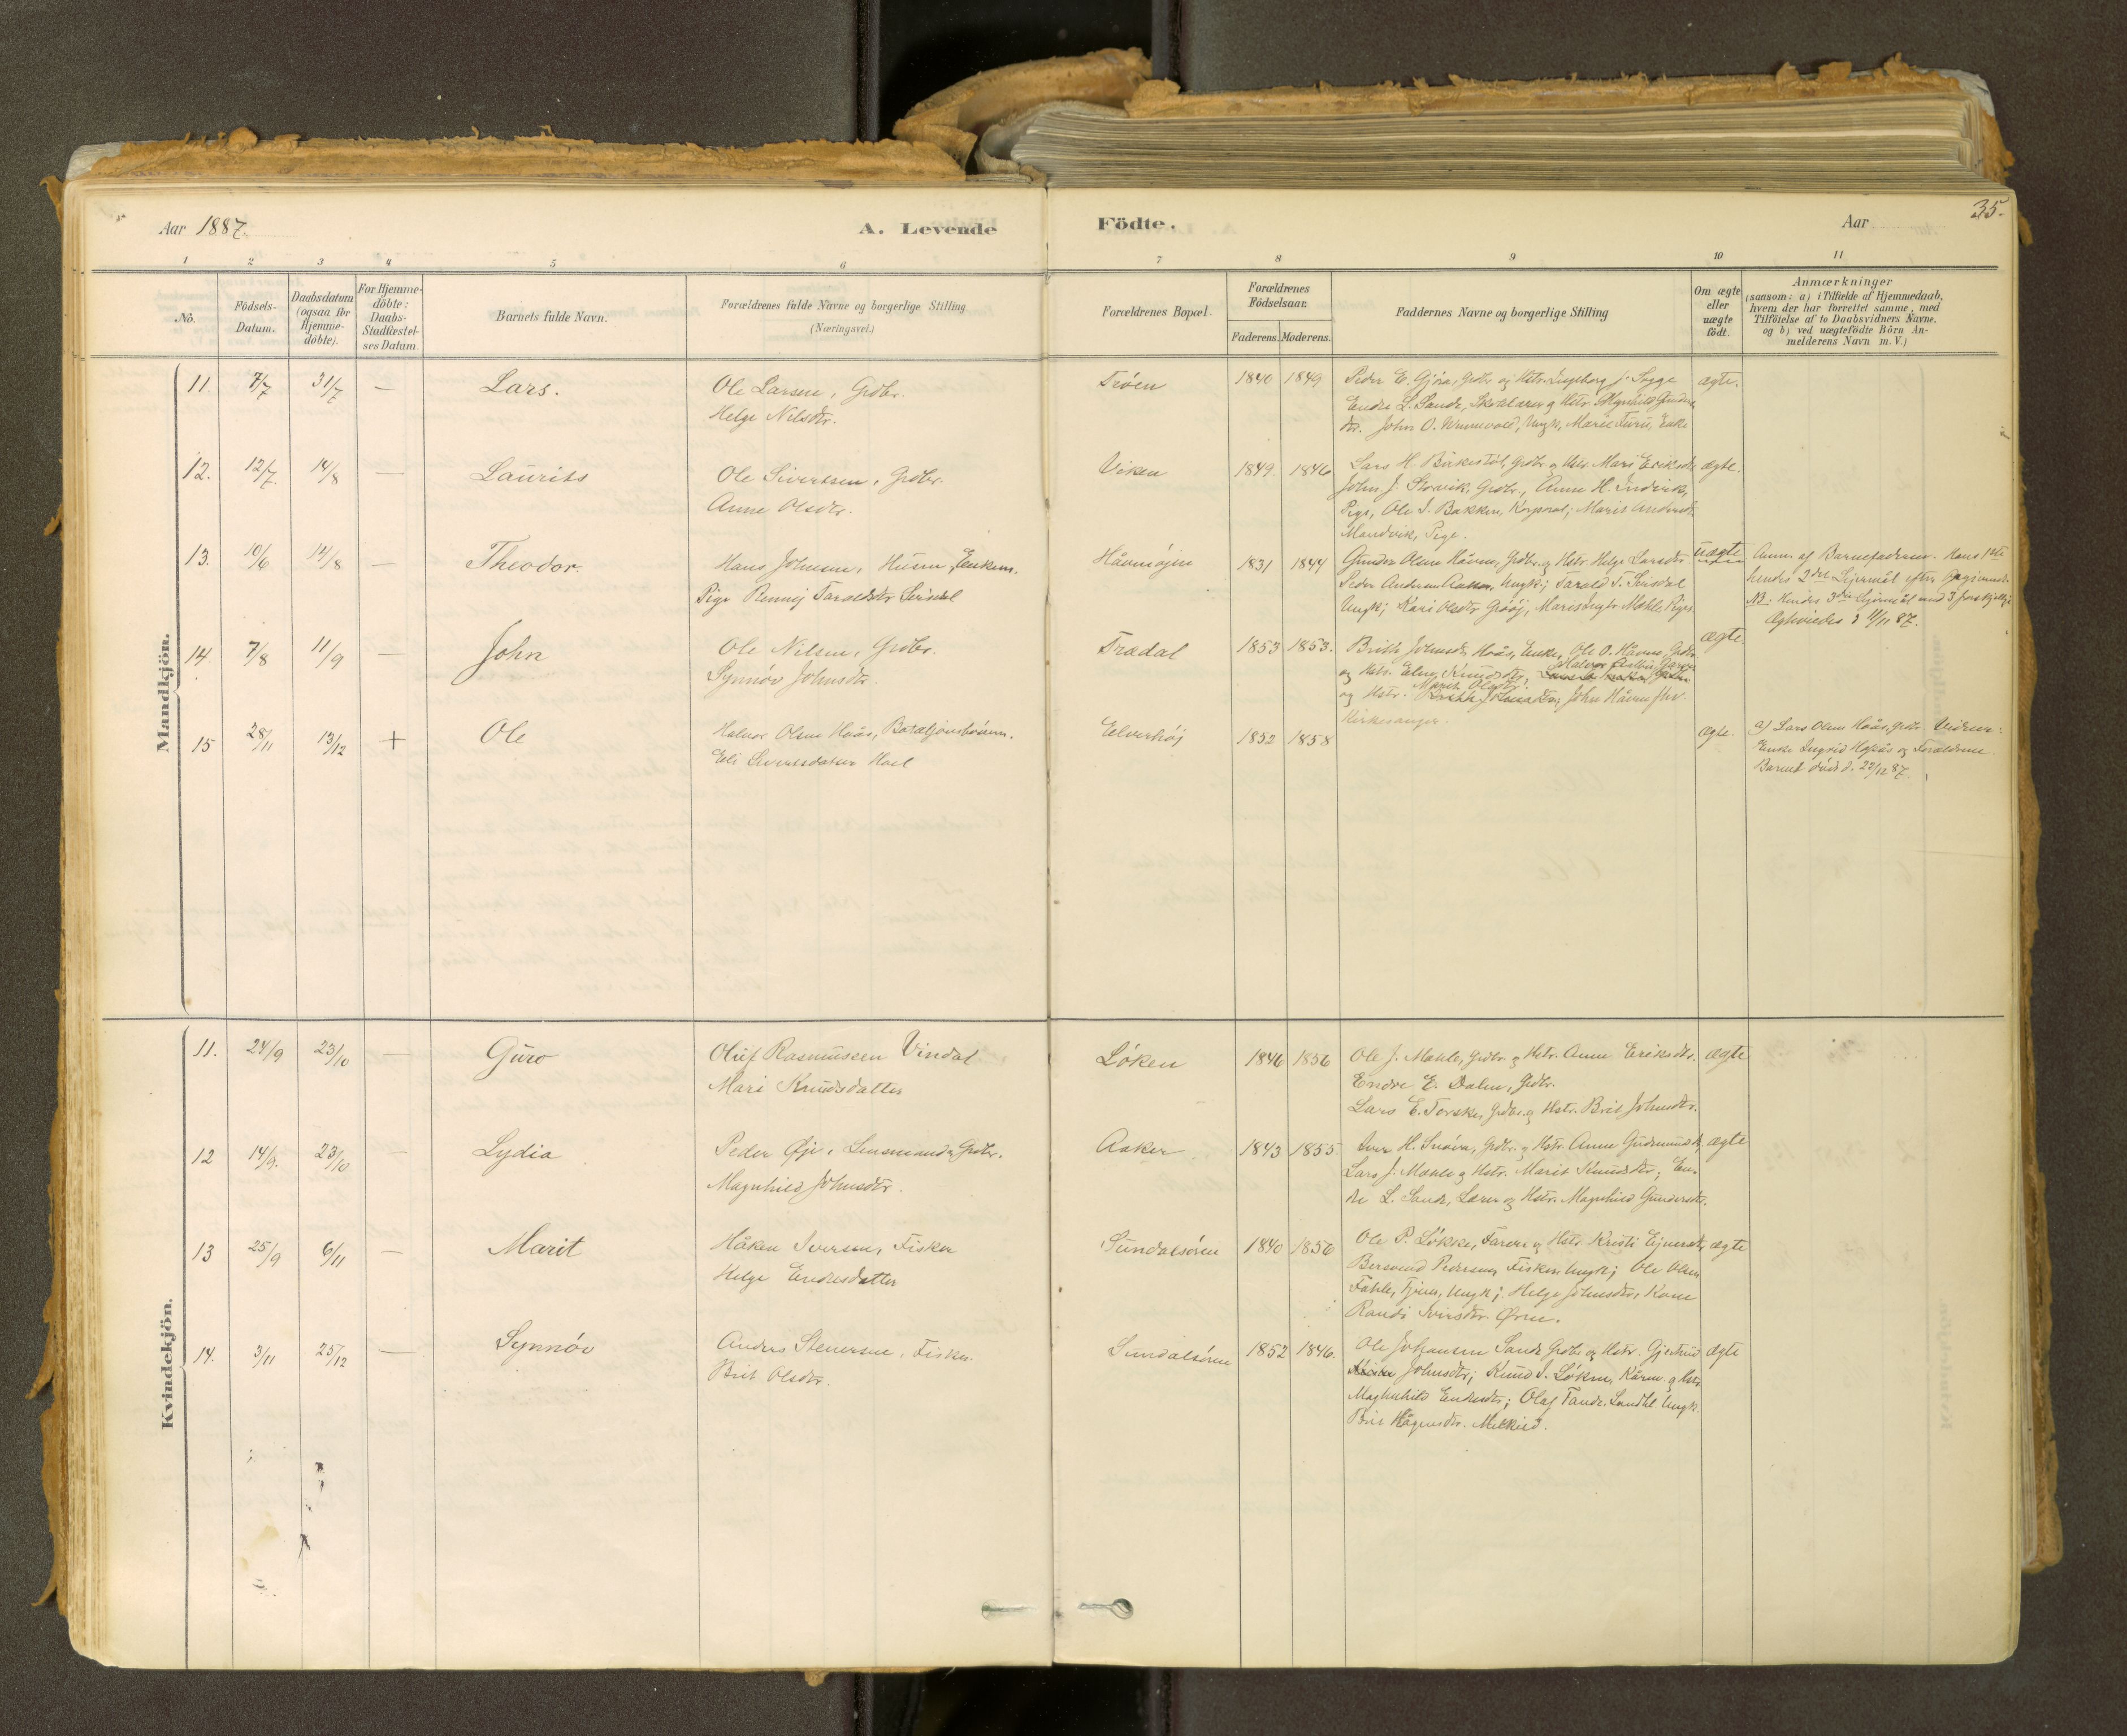 Aar 1887.
A. Levende
Födte.
Aar
35.
1 2 3 4 5 6 7 8 9 10 11
No.
Födsels-
Datum.
Daabsdatum
(ogsaa for
Hjemme-
döbte).
For Hjemme-
döbte:
Daabs-
Stadfæstel-
ses Datum.
Barnets fulde Navn.
Forældrenes fulde Navne og borgerlige Stilling
(Næringsvei.)
Forældrenes Bopæl.
Forældrenes
Födselsaar.
Faderens. Moderens.
Faddernes Navne og borgerlige Stilling
Om ægte
eller
uægte
födt.
Anmærkninger
(saasom: a) i Tilfælde af Hjemmedaab,
hvem der har forrettet samme, med
Tilföielse af to Daabsvidners Navne.
og b) ved uægtefödte Börn An-
melderens Navn m. V.)
Mandkjön.
11. 7/7 31/7 — Lars.
Ole Larsen, Grdbr.
Helge Nilsdtr.
Trøen 1840 1849
Peder E. Gjøra, Grdbr og Hstr. Ingeborg J. Sogge
Endre L. Sande, Skolelærer og Hstr. Magnhild Gunders
dtr. John O. Ungk, Marie Furu, Enke
ægte.
12. 12/7 14/8 — Laurits
Ole Sivertsen, Grdbr.
Anne Olsdtr.
Viken 1849 1846
Lars H. Birkestøl, Grdbr og Hstr. Mari Eriksdtr
John J. Storvik, Grdbr., Anne H.
Pige, Ole I. Bakken, Korporal; Marit Andersdtr
Pige.
ægte.
13. 10/6 14/8 — Theodor.
Hans Johnsen, Husm, Enkem.
Pige Rønnøj Taraldsdtr
Håvnvøjen 1831 1844
Gunder Olsen Håvnen, Grdbr. og Hstr. Helge Larsdtr
Peder Andersen Ungk; Tarald T.
Ungk; Kari Olsdtr Grøøj, Maris Mæhle Piger
uægte
Anm. af Barnefaderen. Hans 1ste
hendes 2det Lejermål efter Opgivende.
NB: Hendes 3die Lejermål med 3 forskjellige
Ægteviedes d 11/11 87.
14. 7/8 11/9 — John
Ole Nilsen, Grdbr.
Synnøv Johnsdtr.
Trædal 1853 1853.
Brith Johnsdtr Hoås, Enke, Ole O. Håvnen Grdbr
og Hstr. Elen Knudsdtr,
og Hstr. Marit Olsdtr. John Håvnen fhv.
Kirkesanger.
ægte.
15 28/11 13/12 + Ole
Halvor Olsen Hoås,
Eli Sivertsdatter Hoel
Elverhøj 1852 1858
ægte.
a) Lars Olsen Hoås, Grdbr Vidner:
Enke Ingrid Hoås og Forældrene.
Barnet døde d. 22/12 87.
Kvindekjön.
11. 24/9 23/10 — Guro
Oluf Rasmussen Vindal
Mari Knudsdatter
Løken 1846 1856
Ole J. Mæhle, Grdbr. og Hstr. Anne Eriksdtr.
Endre E. Dalen, Grdbr.
Lars E. Torske, Grdbr. og Hstr. Brit Johnsdtr.
ægte
12 14/9. 23/10 — Lydia
Peder Øje, Lensmand & Grdbr.
Magnhild Johnsdtr.
Aaker 1843 1855
Iver H. Snøva, Grdbr. og Hstr. Anne Gudmundsdtr,
Lars J. Mæhle og Hstr. Marit Knudsdtr; En-
dre L. Sande, Lærer og Hstr. Magnhild Gundersdtr.
ægte
13 25/9 6/11 — Marit
Håken Iversen, Fisker
Helge Endresdatter
Sundalsøren 1840 1856
Ole P. Løkke, Farver og Hstr. Kristi Ejnarsdtr,
Bersvend Pedersen, Fisker, Ungk; Ole Olsen
Fahle, Tjener, Ungk; Helge Johnsdtr, Kone
Randi Iversdtr. Øren.
ægte
14. 3/11 25/12 — Synnøv
Anders Stenersen, Fisker.
Brit Olsdtr.
Sundalsøren 1852 1846.
Ole Johansen Sande Grdbr og Hstr. Gjertrud
Johnsdtr; Knud I. Løken, Kårm. og Hstr
Magnhild Endresdtr; Olaf Tande. Landhdl. Ungk.
Brit Hågensdtr.
ægte